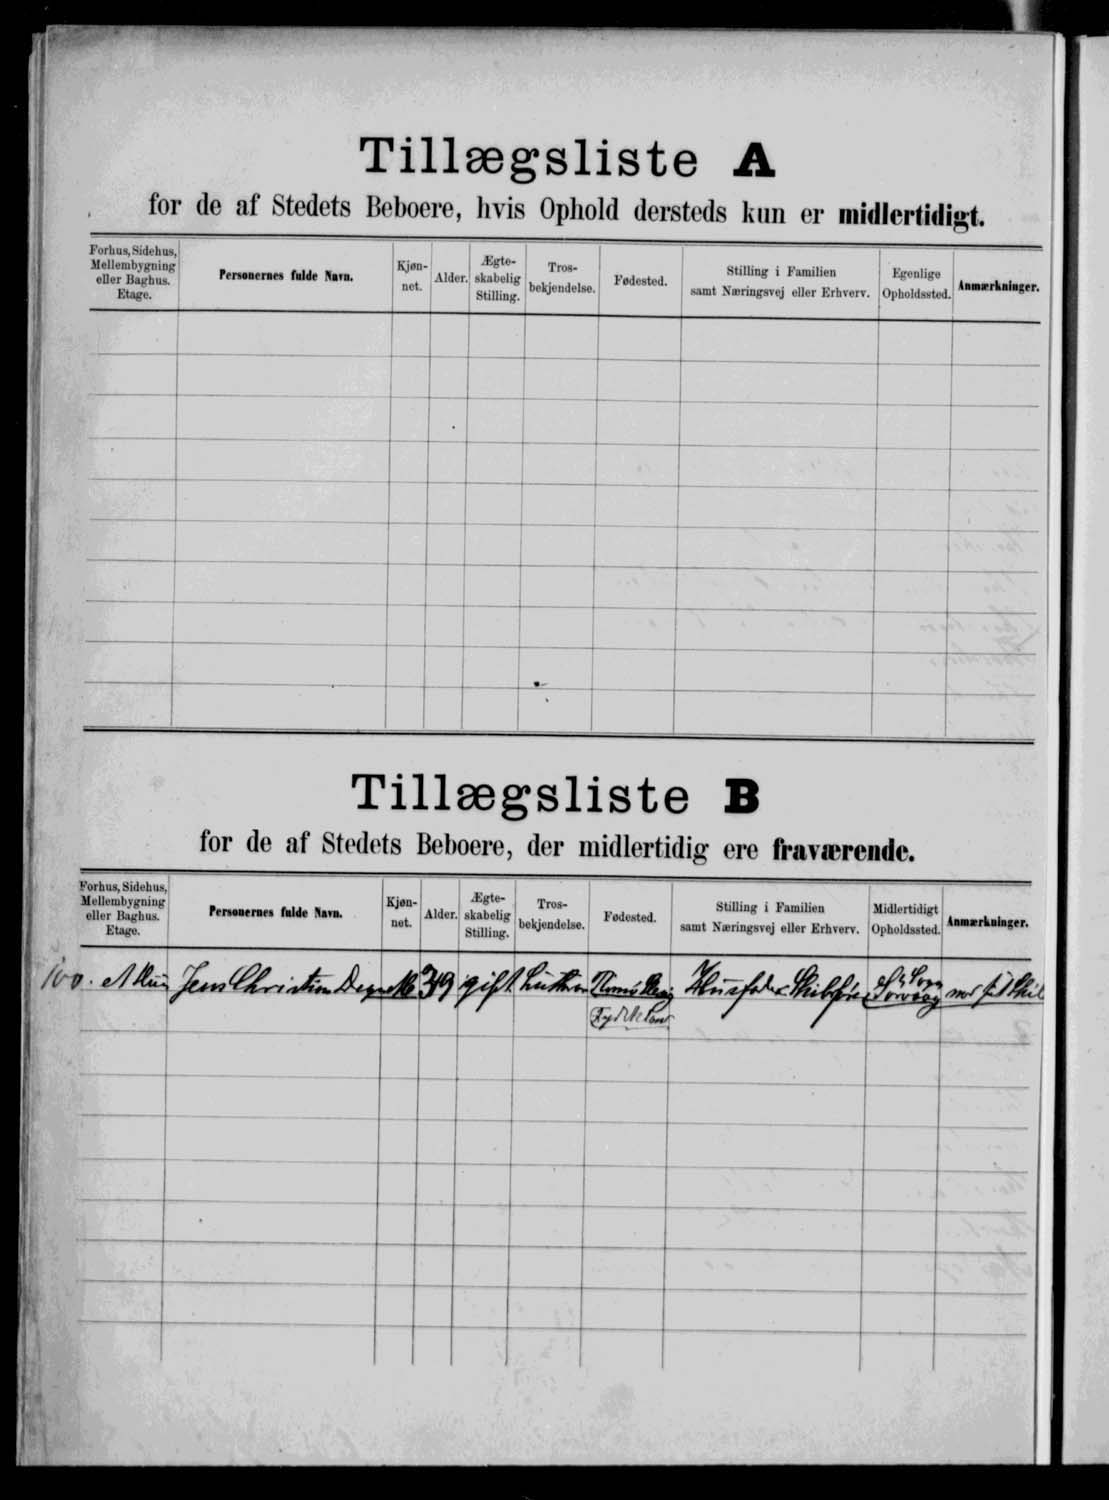 Tillægsliste A
for de af Stedets Beboere, hvis Ophold dersteds kun er midlertidigt.
Forhus, Sidehus, Mellembygning eller Baghus. Etage.
Personernes fulde Navn.
Kjøn-
net.
Alder.
Ægte-
skabelig
Stilling.
Tros-
bekjendelse.
Fødested.
Stilling i Familien
samt Næringsvej eller Erhverv.
Egenlige
Opholdssted.
Anmærkninger.
Tillægsliste B
for de af Stedets Beboere, der midlertidig ere fraværende.
Forhus, Sidehus,
Mellembygning
eller Baghus.
Etage.
Personernes fulde Navn.
Kjøn-
net.
Alder.
Ægte-
skabelig
Stilling.
Tros-
bekjendelse.
Fødested.
Stilling i Familien
samt Næringsvej eller Erhverv.
Midlertidigt
Opholdssted.
Anmærkninger.
100. Jens Christian M 39 gift Husfader